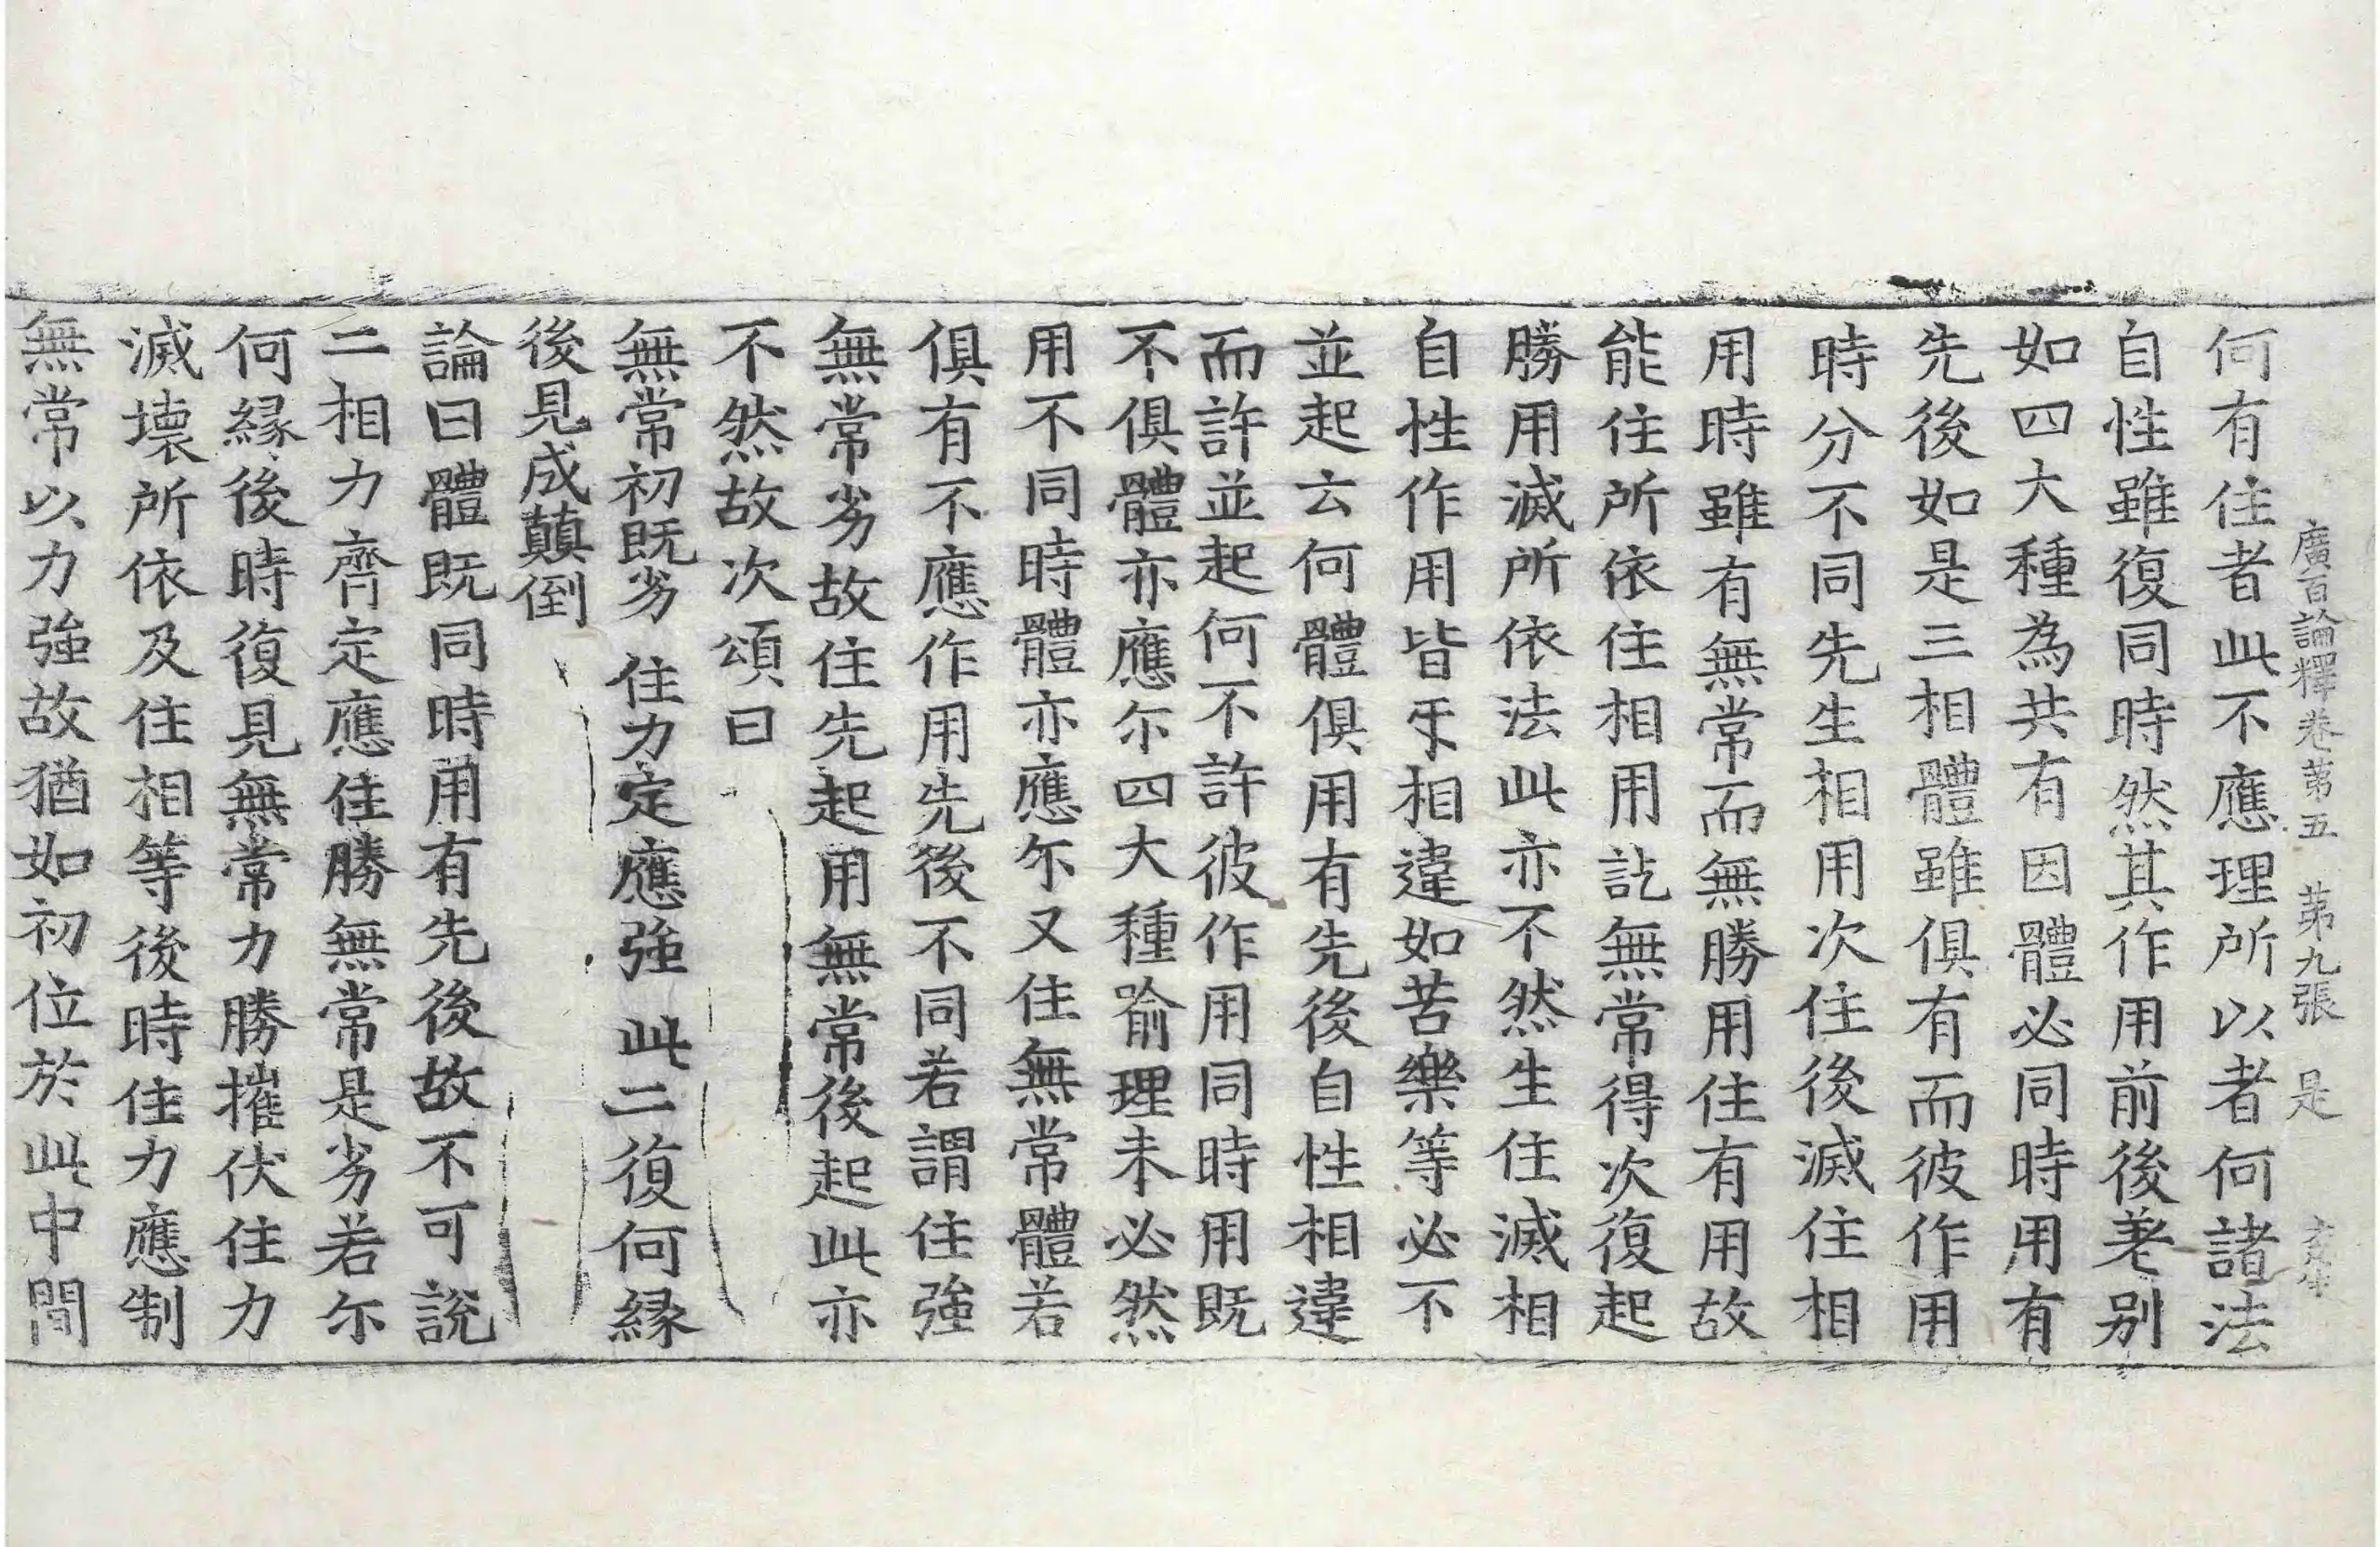 廣百論釋卷苐五　苐九張　是
何有住者此不應理所以者何諸法
自性雖復同時然其作用前後差别
如四大種為共有因體必同時用有
先後如是三相體雖俱有而彼作用
時分不同先生相用次住後滅住相
用時雖有無常而無勝用住有用故
能住所依住相用訖無常得次復起
勝用滅所依法此亦不然生住滅相
自性作用皆㸦相違如苦樂等必不
並起云何體俱用有先後自性相違
而許並起何不許彼作用同時用既
不俱體亦應尓四大種喻理未必然
用不同時體亦應尓又住無常體若
俱有不應作用先後不同若謂住強
無常劣故住先起用無常後起此亦
不然故次頌曰
無常初既劣　住力定應強　此二復何縁
後見成顛倒
論曰體既同時用有先後故不可説
二相力齊定應住勝無常是劣若尓
何縁後時復見無常力勝摧伏住力
滅壞所依及住相等後時住力應制
無常以力強故猶如初位於此中間